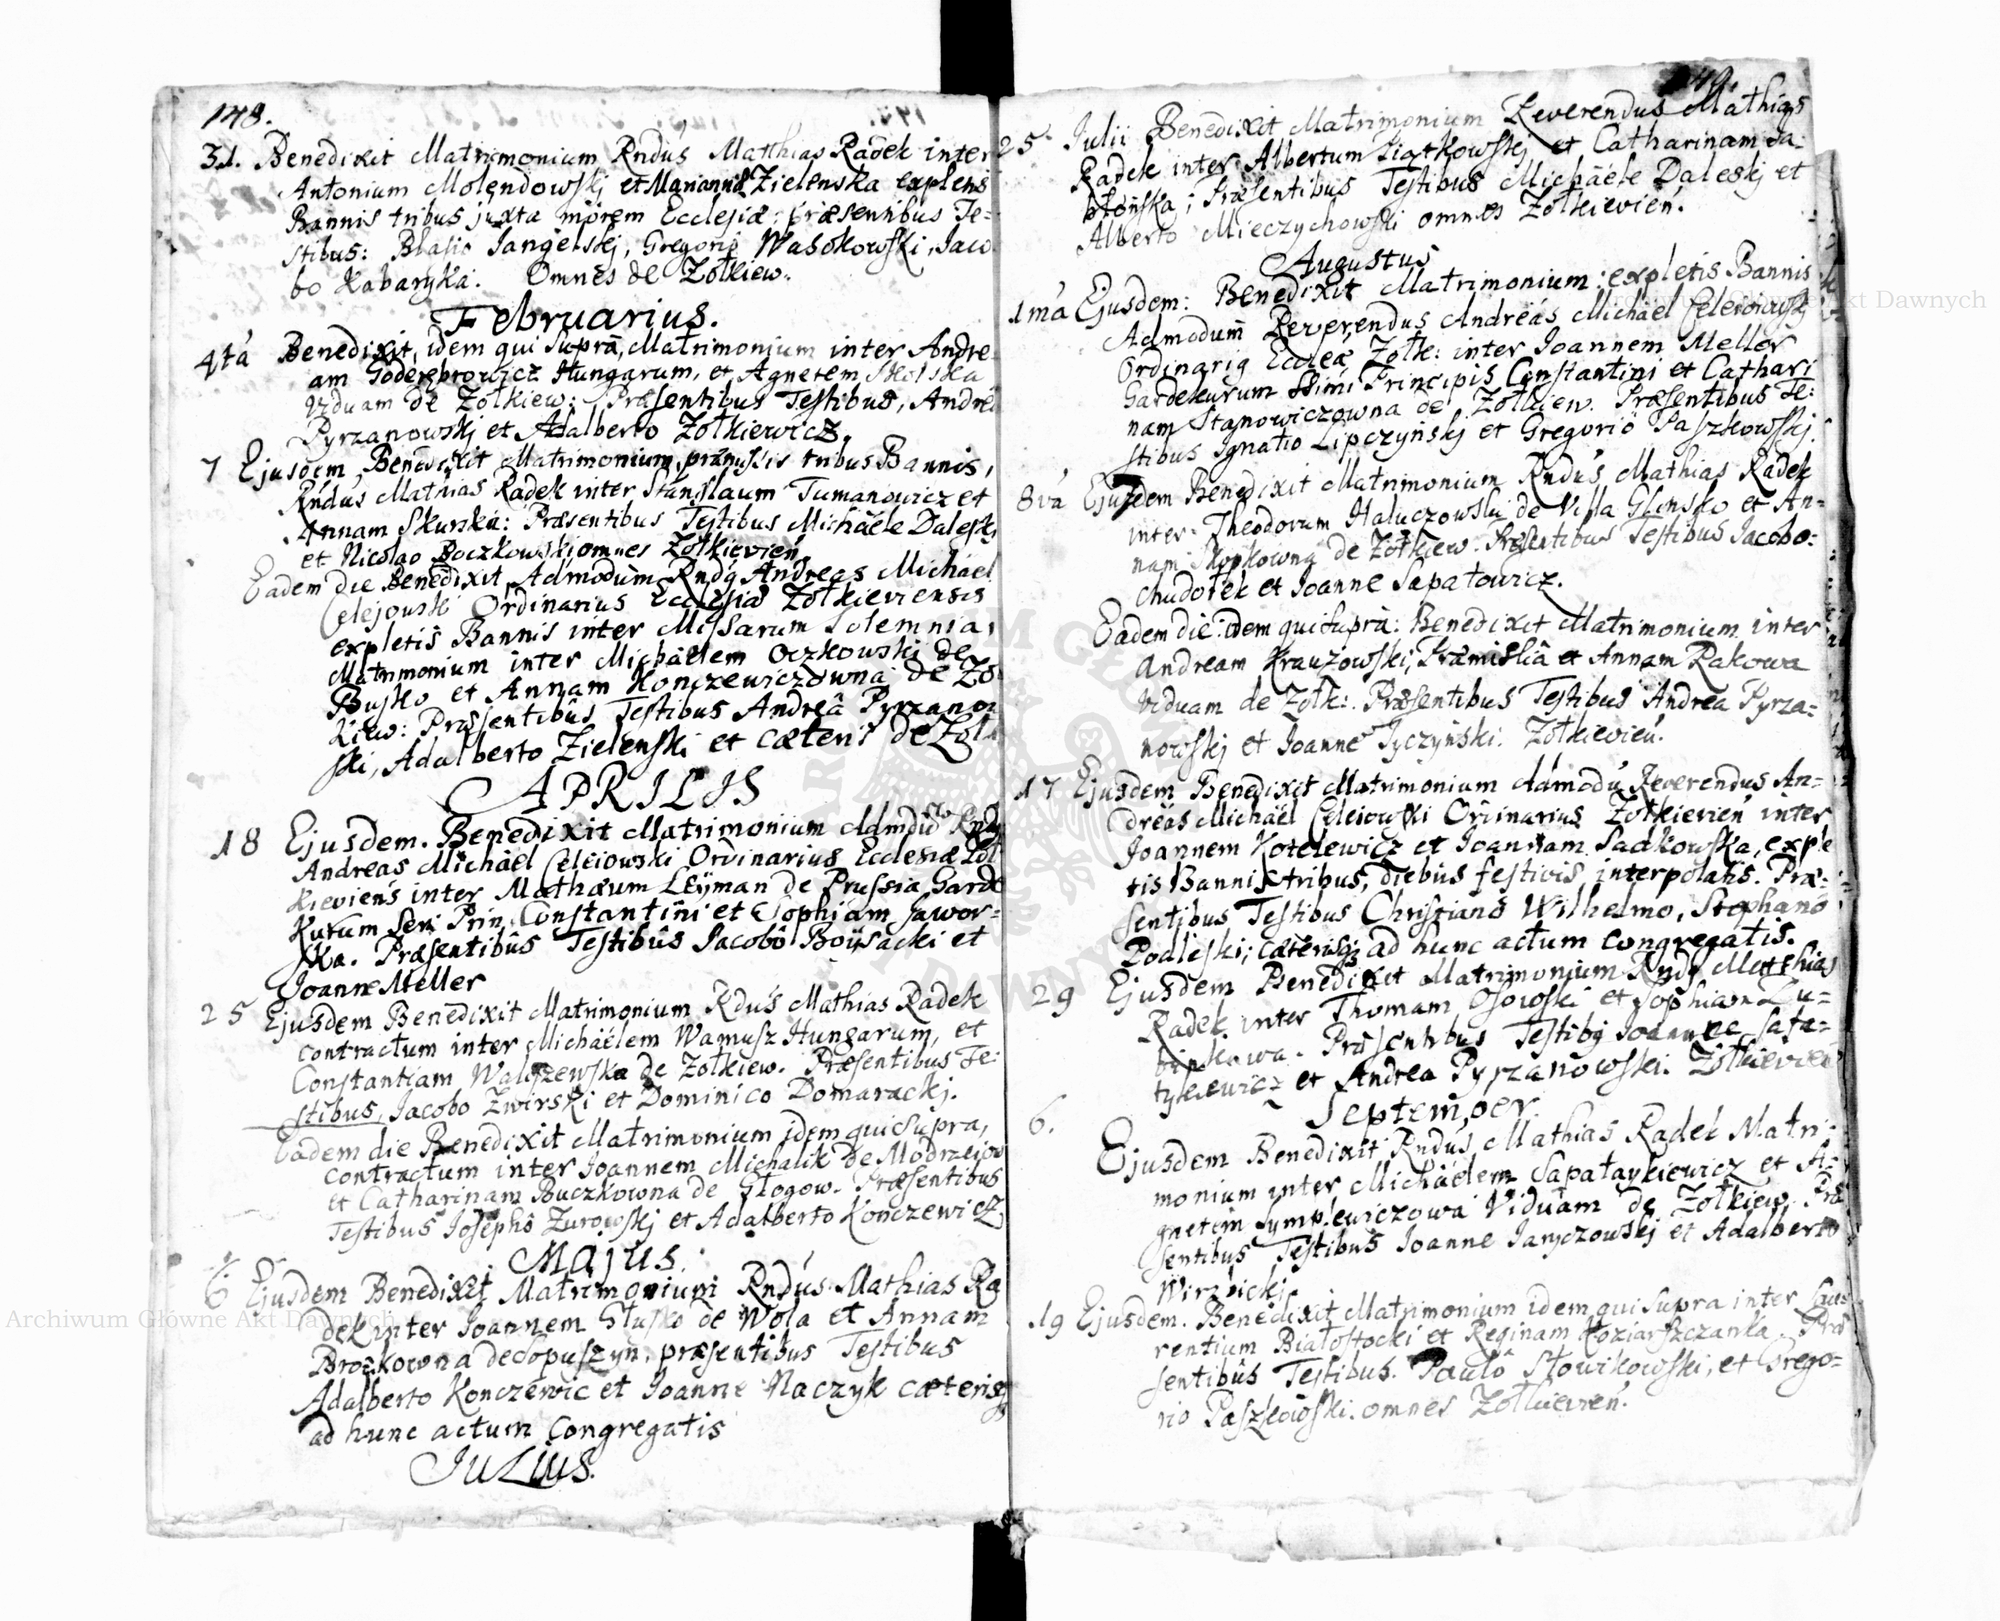 148.
31. Benedixit Matrimonium Rndus Matthias Radek inter
Antonium Molendowskj et Mariannã Zielenska explens
Bannis tribus juxta morem Ecclesiæ; præsentibus Te=
stibus: Blasio Sangelskj, Gregorio Wasokowski, Jaco
bo Kabaryka. Omnes de Zołkiew.
Februarius.
4tá Benedixit, idem qui supra, Matrimonium inter Andre=
am Hungarum, et Agnetem
Viduam de Zołkiew: Præsentibus Testibus, Andreâ
Pyrzanowskj et Adalberto Zołkiewicz.
7 Ejusdem Benedixit Matrimonium, præmissis tribus Bannis,
Rndus Mathias Radek inter Stanislaum Tumanowicz et
Annam Skurska: Præsentibus Testibus Michäele Daleskj
et Nicolao Boczkowski omnes Zołkievień.
Eadem die Benedixit Admodum Rndq Andreas Michael
Celejowski Ordinarius Ecclesiæ Zołkieviensis
expletis Bannis inter Missarum Solemnia,
Matrimonium inter Michäelem Oczkowski de
Busko et Annam Konczewiczowna de Zoł
kiew: Præsentibus Testibus Andreâ Pyrzanow
ski, Adalberto Zielenski et cæteris de Zoł
APRILIS
18 Ejusdem. Benedixit Matrimonium Admdũ Rndq
Andreas Michäel Celeiowski Ordinarius Ecclesiæ Zoł
kieviens inter Mathæum Leÿman de Prussia, Garde
Kurum Seri Prin, Constantini et Sophiam Jawor=
ska. Præsentibus Testibus Jacobô Boÿsacki et
Joanne Meller
25 Ejusdem Benedixit Matrimonium Rdus Mathias Radek
contractum inter Michäelem Wamusz Hungarum, et
Constantiam Waliszewska de Zołkiew. Præsentibus Te=
stibus, Jacobo Zwirski et Dominico Domarackj.
Eadem die Benedixit Matrimonium idem qui supra,
contractum inter Joannem Michalik de Modrzejow
et Catharinam Buczkowna de Głogow. Præsentibus
Testibus Josephô Zurowskj et Adalberto Konczewicz
Majus.
6 Ejusdem Benedixit Matrimonium Rndus Mathias Ra
dek inter Joannem Stusko de Wola et Annam
Broczkowna de Sopuszyn, præsentibus Testibus
Adalberto Konczewic et Joanne Naczyk cæterisq
ad hunc actum Congregatis
Julius.
149.
25 Julii Benedixit Matrimonium Reverendus Mathias
Radek inter Albertum Piątkowskj et Catharinam Ja=
błońska; Præsentibus Testibus Michäele Daleskj et
Alberto Mieczychowski omnes Zołkievień.
Augustus
1má Ejusdem: Benedixit Matrimonium: expletis Bannis
Admodum Reverendus Andreäs Michäel Celeiowskj
Ordinariq Eccleæ Zołk: inter Joannem Meller
Gardekurum Principis Constantini et Cathari
nam Stanowiczowna de Zołkiew. Præsentibus Te=
stibus Ignatio Lipczyńskj et Gregoriö Paszkowskj.
8vá Ejusdem Benedixit Matrimonium Rndus Mathias Radek
inter Theodorum Haluczowski de Villa Glinsko et An=
nam Skopkowna de Zołkiew. Præsentibus Testibus Jacobo=
Chudołek et Joanne Sapatowicz.
Eadem die: idem qui supra: Benedixit Matrimonium inter
Andream Krauzowski, et Annam Rakowa
Viduam de Zołk: Præsentibus Testibus Andrea Pyrza=
nowskj et Joanne Tyczyński. Zołkievień.
17 Ejusdem Benedixit Matrimonium Admodũ Reverendus An=
dreäs Michäël Celeiowski Ordinarius Zołkievień inter
Joannem Kotelewicz et Joannam Sadkowska, exple
tis Bannis tribus, diebus festivis interpolatis. Præ=
sentibus Testibus Christianô Wilhelmo, Stephano
Podleski; cæterisq ad hunc actum congregatis.
29 Ejusdem Benedixit Matrimonium Rndq Matthias
Radek inter Thomam Osowski et Sophiam Du=
binkowa. Præsentibus Testibq Joanne Safa=
tykiewicz et Andrea Pyrzanowski. Zołkievień
September
6. Ejusdem Benedixit Rndus Mathias Radek Matri=
monium inter Michäelem Sapataykiewicz et A=
gnetem Symplewiczowa Viduam de Zołkiew. Præ
sentibus Testibus Joanne Janyczowskj et Adalberto
Wirzbickj.
19 Ejusdem. Benedixit Matrimonium idem qui supra inter Lau=
rentium Białostocki et Reginam Koziarszczanka. Præ
sentibûs Testibus. Paulô Słowikowski, et Grego=
rio Paszkowski. omnes Zołkievień.
Archiwum Główne Akt Dawnych
Archiwum Główne Akt Dawnych
ARCHIWUM GŁÓWNE AKT DAWNYCH